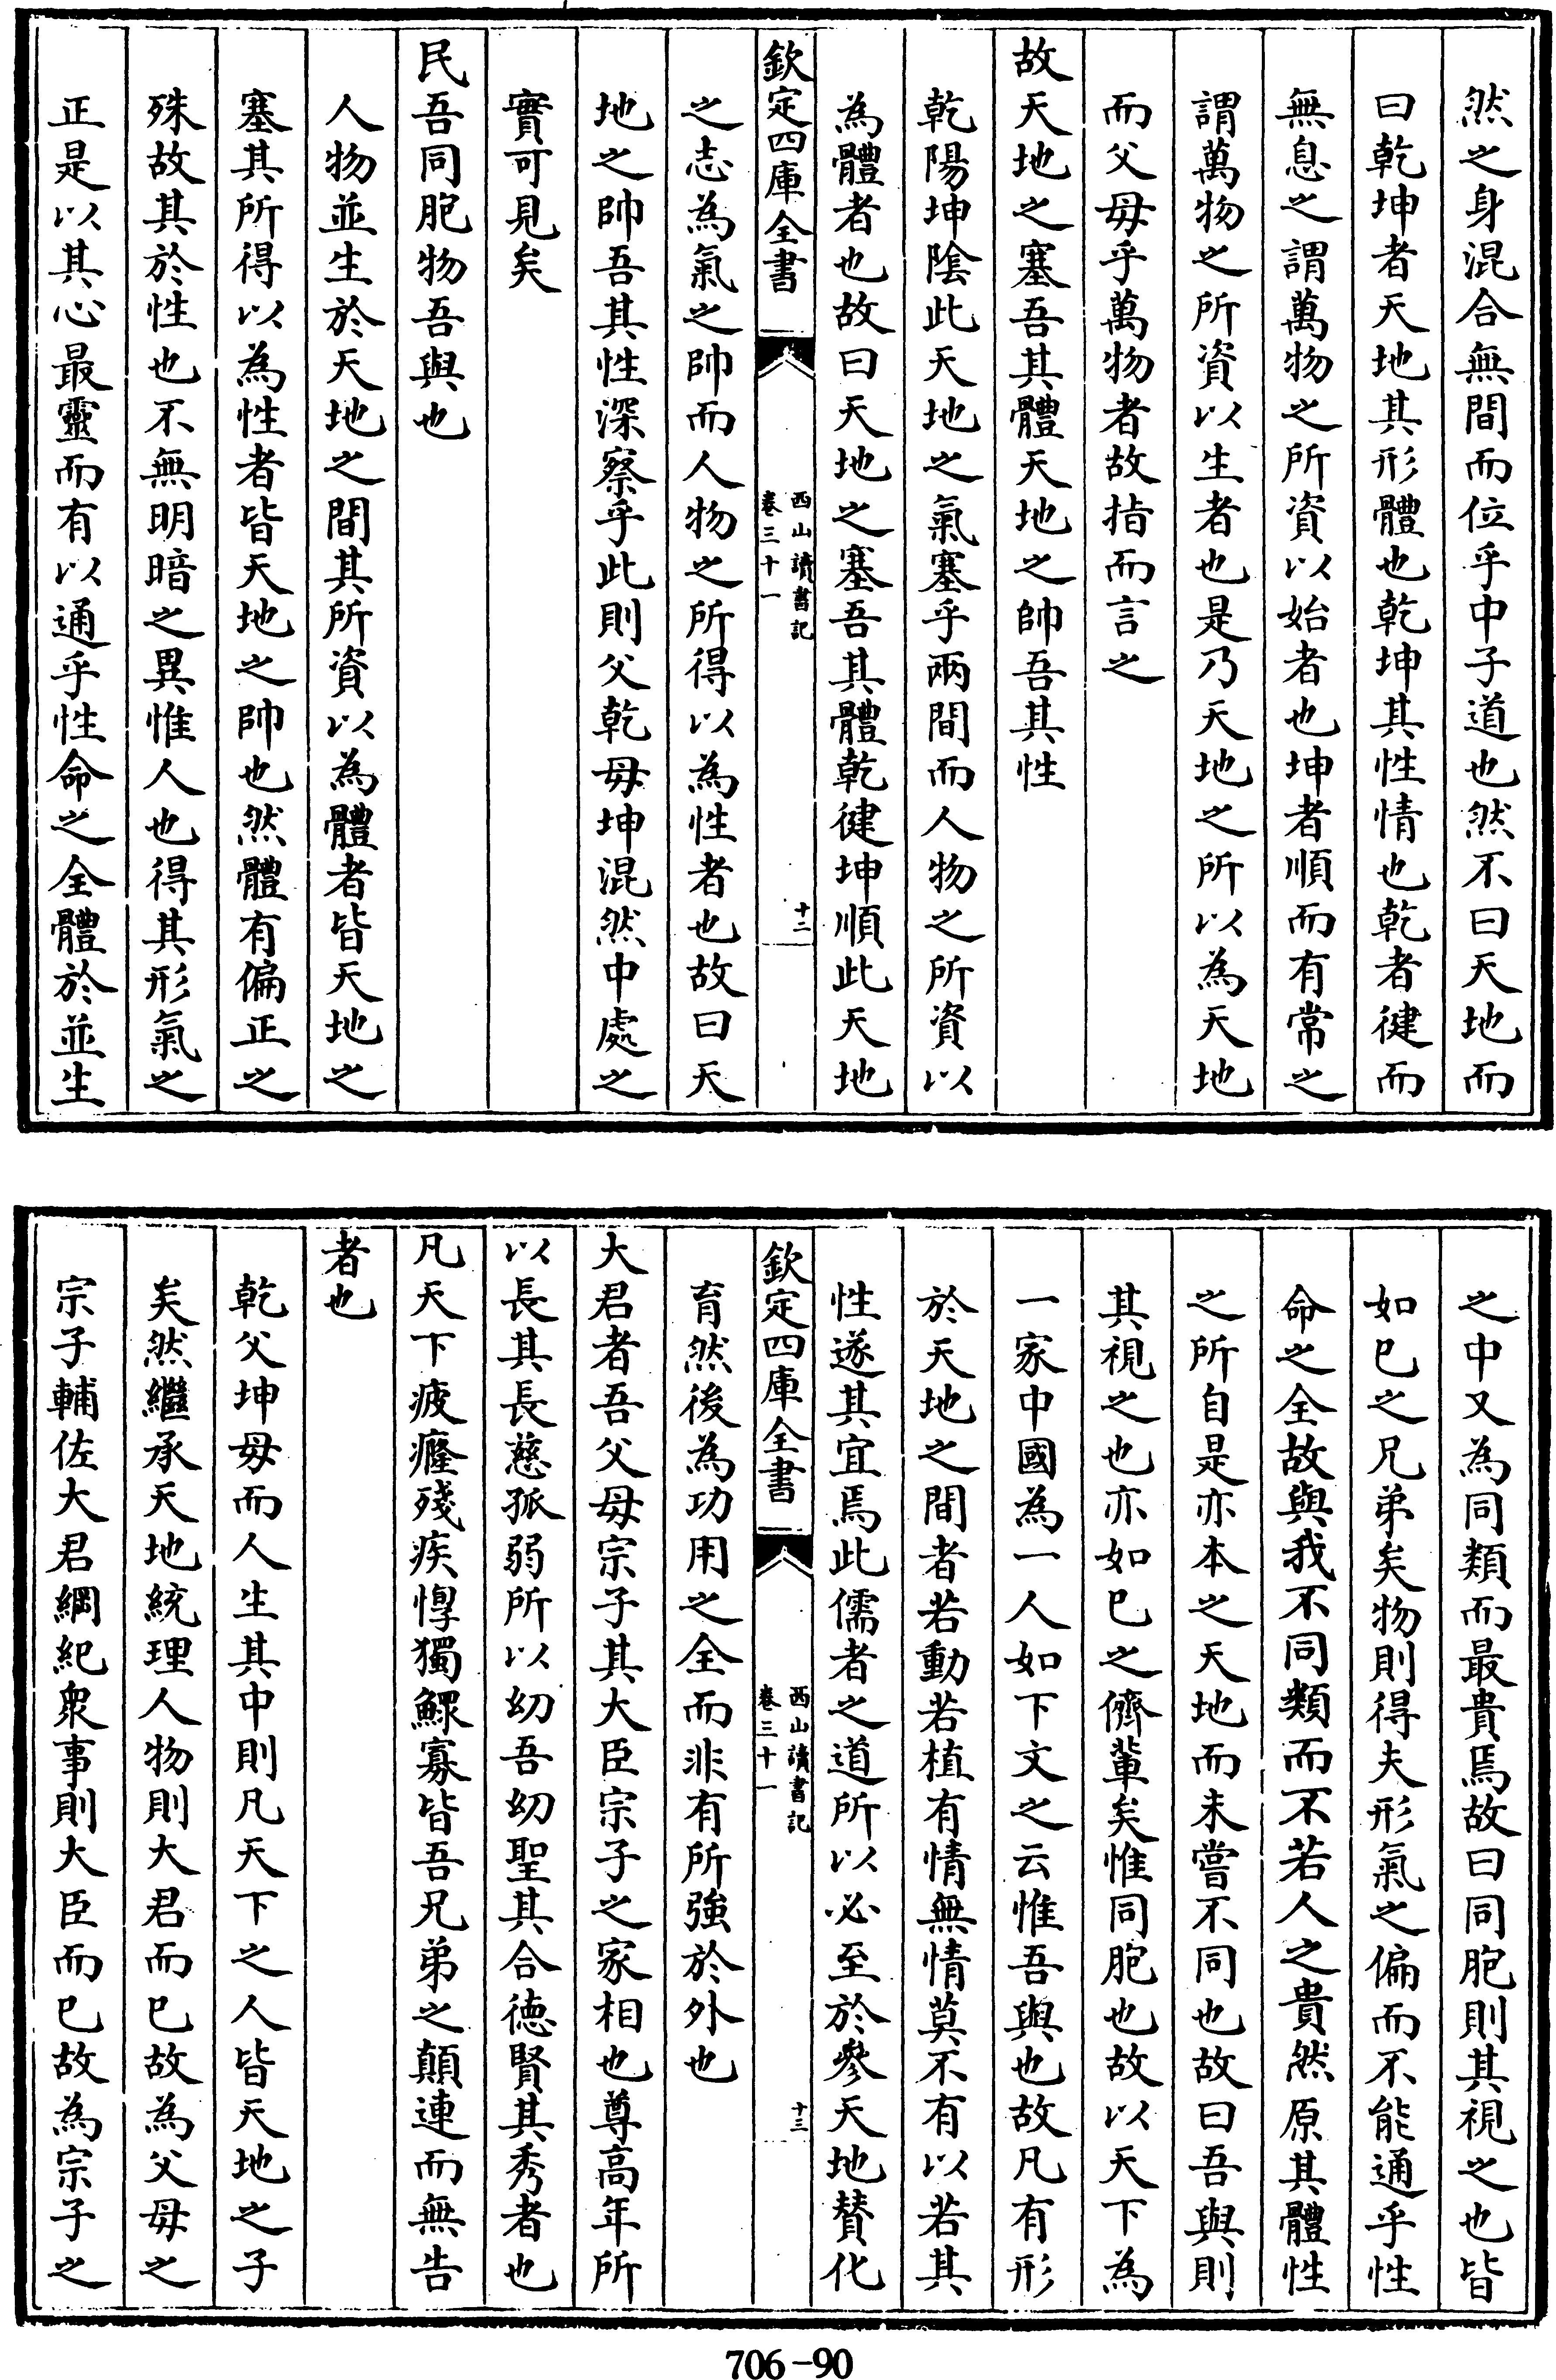 然之身混合無間而位乎中子道也然不曰天地而
曰乾坤者天地其形體也乾坤其性情也乾者健而
無息之謂萬物之所資以始者也坤者順而有常之
謂萬物之所資以生者也是乃天地之所以為天地
而父母乎萬物者故指而言之
故天地之塞吾其體天地之帥吾其性
乾陽坤陰此天地之氣塞乎兩間而人物之所資以
為體者也故曰天地之塞吾其體乾健坤順此天地
欽定四庫全書
西山讀書記
卷三十一
十二
之志為氣之帥而人物之所得以為性者也故曰天
地之帥吾其性深察乎此則父乾母坤混然中處之
實可見矣
民吾同胞物吾與也
人物並生於天地之間其所資以為體者皆天地之
塞其所得以為性者皆天地之帥也然體有偏正之
殊故其於性也不無明暗之異惟人也得其形氣之
正是以其心最靈而有以通乎性命之全體於並生
之中又為同類而最貴焉故曰同胞則其視之也皆
如已之兄弟矣物則得夫形氣之偏而不能通乎性
命之全故與我不同類而不若人之貴然原其體性
之所自是亦本之天地而未嘗不同也故曰吾與則
其視之也亦如已之儕輩矣惟同胞也故以天下為
一家中國為一人如下文之云惟吾與也故凡有形
於天地之間者若動若植有情無情莫不有以若其
性遂其宜焉此儒者之道所以必至於參天地贊化
欽定四庫全書
西山讀書記
卷三十一
十三
育然後為功用之全而非有所強於外也
大君者吾父母宗子其大臣宗子之家相也尊高年所
以長其長慈孤弱所以幼吾幼聖其合德賢其秀者也
凡天下疲癃殘疾惸獨鰥寡皆吾兄弟之顛連而無告
者也
乾父坤母而人生其中則凡天下之人皆天地之子
矣然繼承天地統理人物則大君而已故為父母之
宗子輔佐大君綱紀衆事則大臣而已故為宗子之
706-90